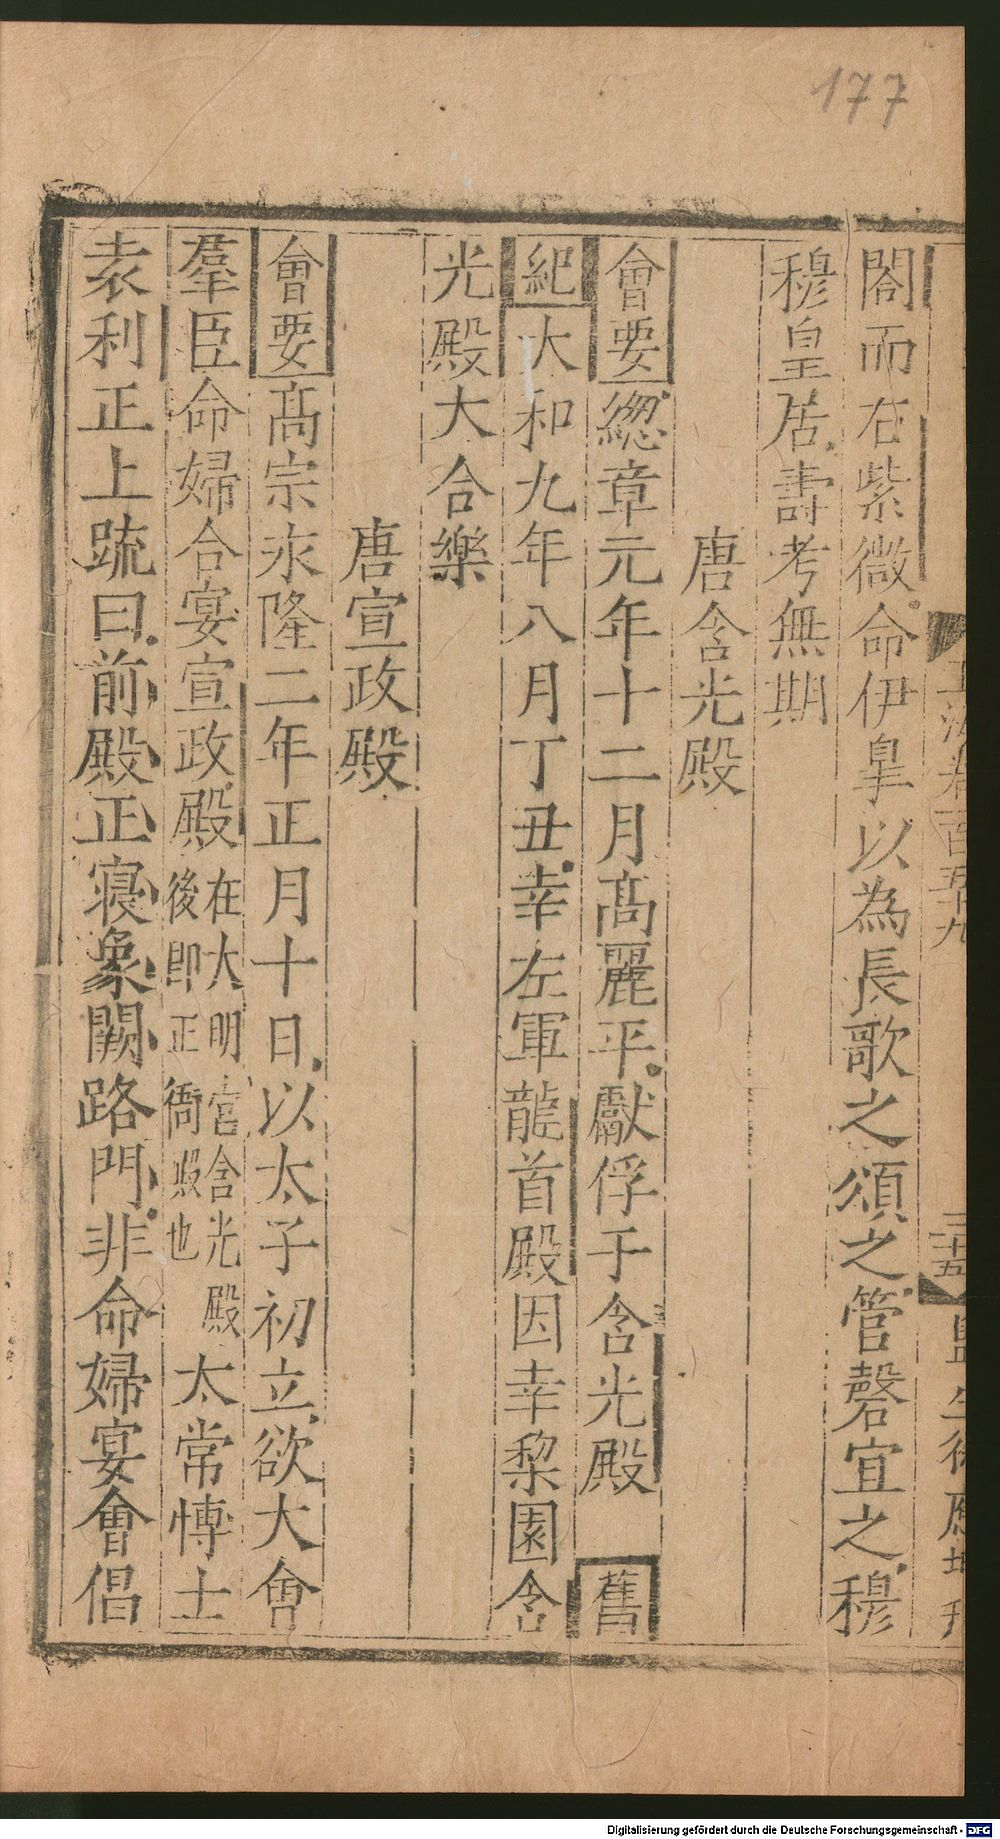 177
玉海卷百五十九 三十五 監生後原
閣而在紫微命伊臯以為長歌之須之管磬宜之穆
穆皇居壽考無期
唐含光殿
會要總章元年十二月髙麗平獻俘于含光殿 舊
紀大和九年八月丁丑幸左軍龍首殿因幸黎園含
光殿大合樂
唐宣政殿
會要髙宗永隆二年正月十日以太子初立欲大會
羣臣命婦合宴宣政殿在大明宮含光殿後即正衙殿也太常博士
袁利正上疏曰前殿正寢象闕路門非命婦宴會倡
Digitalisierung gefördert durch die Deutsche Forschungsgemeinschaft - DFG